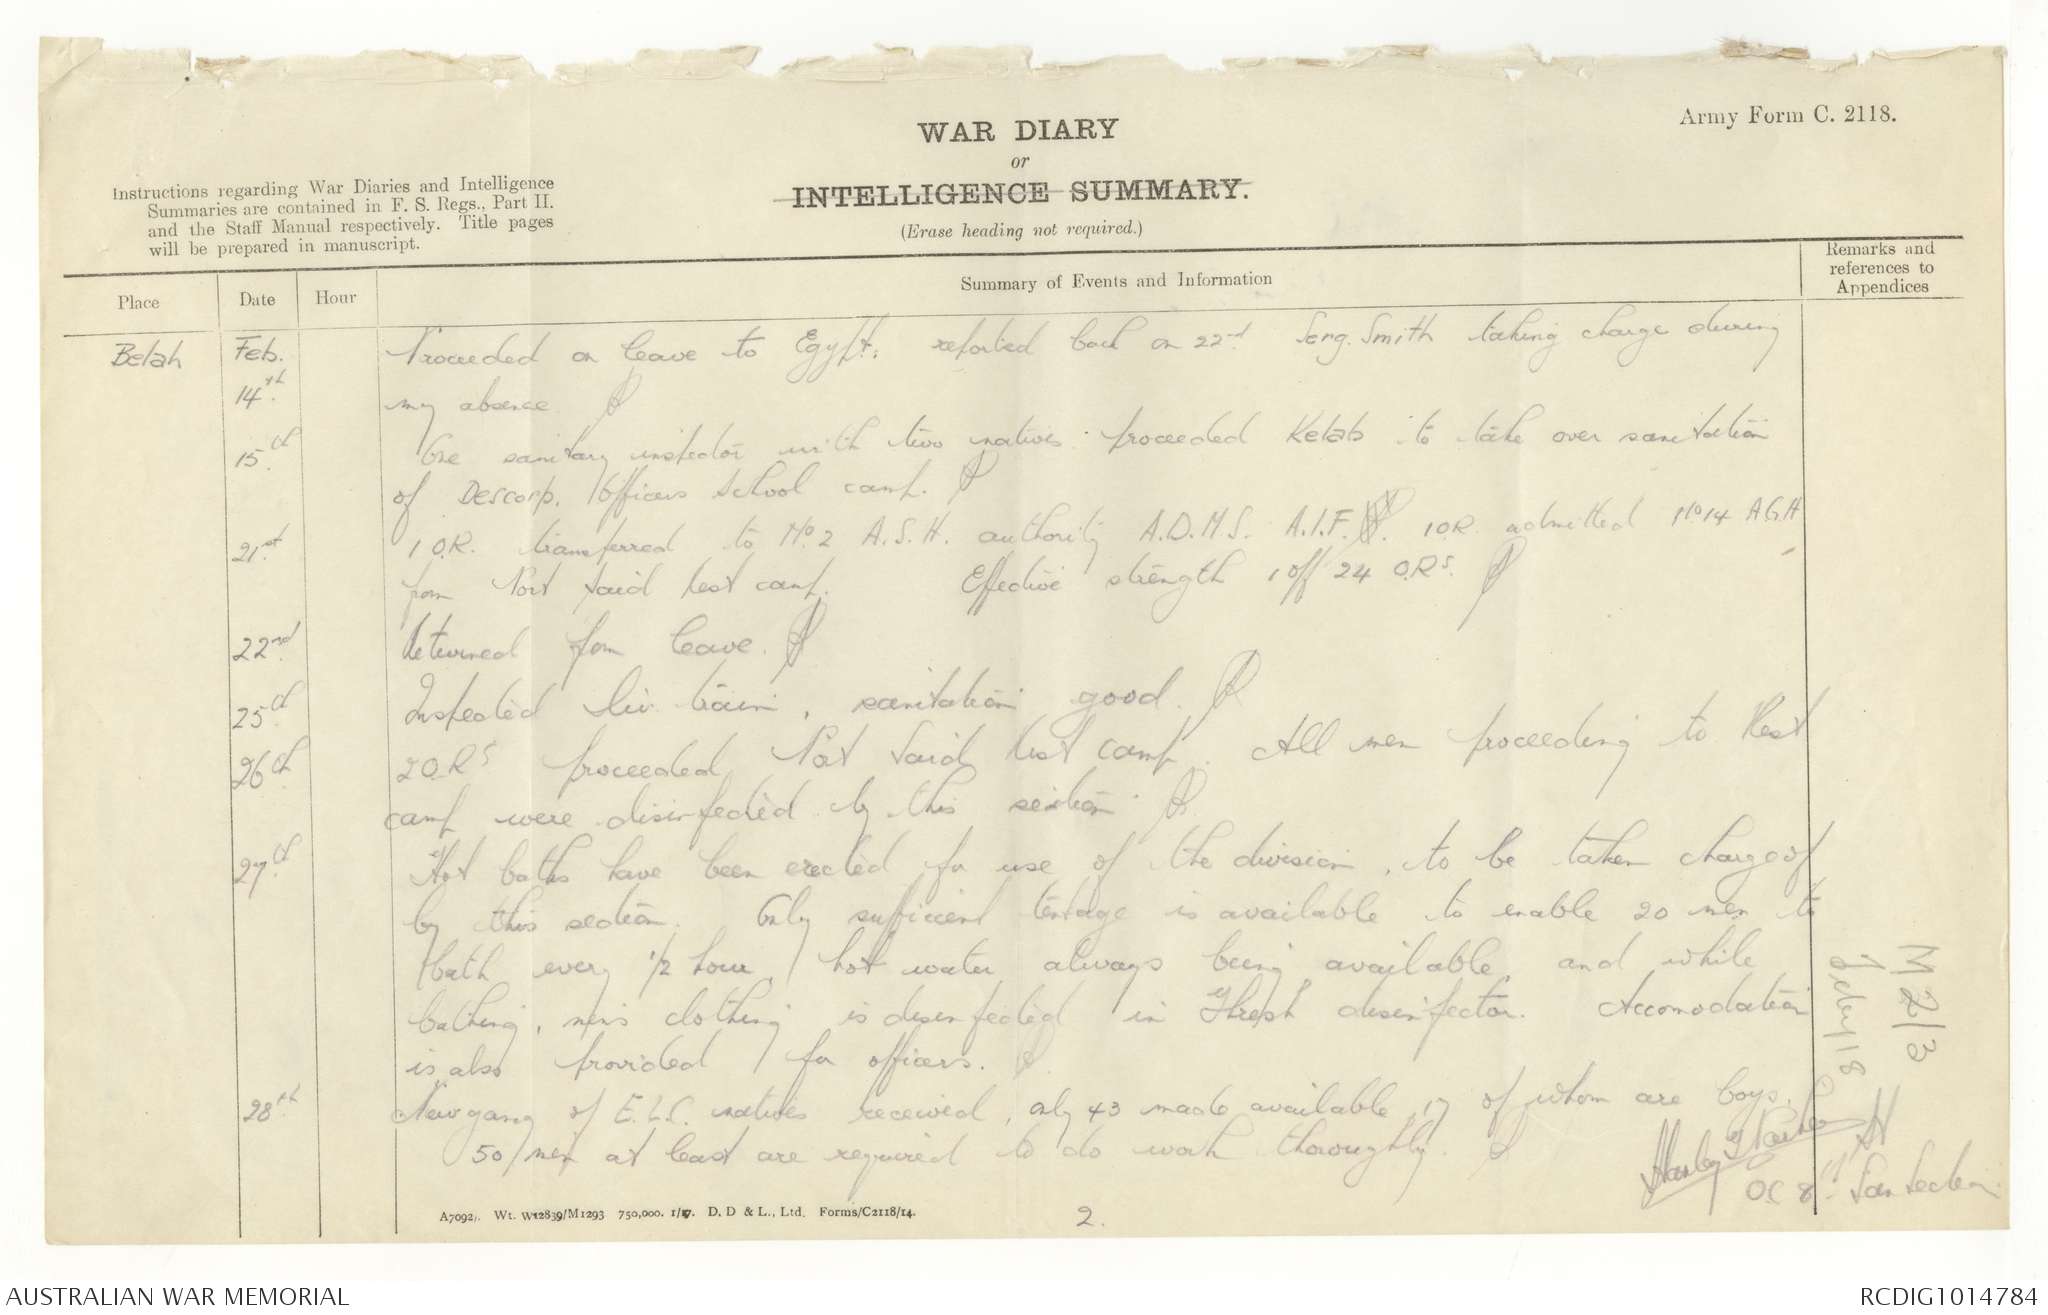 Army Form C. 2118.
WAR DIARY
or
INTELLIGENCE SUMMARY.
(Erase heading not required.)
Instructions regarding War Diaries and Intelligence
Summaries are contained in F. S. Regs., Part II.
and the Staff Manual respectively. Title pages
will be prepared in manuscript.
Place Date Hour Summary of Events and Information Remarks and references to Appendices
Belah Feb. Proceeded on leave to Egypt; reported back on 22nd Serg. Smith taking charge during
14th. my absence
15th. One sanitary inspector with two natives proceeded Kelab to take over sanitation
of Descorp. Officers School camp.
21st. 1 O.R. transferred to No 2 A.S.H. authority A.D.M.S. A.I.F. 1 O.R. admitted No 14 A.G.H
from Port Said rest camp. Effective strength 1 off 24 O.Rs.
22nd. Returned from leave.
25th. Inspected Div. train, sanitation good.
26th 2 O.Rs proceeded Port Said rest camp. All men proceeding to Rest
camp were disinfected by this section.
27th Hot baths have been erected for use of the division, to be taken charge of
by this section. Only sufficient tentage is available to enable 20 men to
bath every 1/2 hour, hot water always being available, and while
bathing, men's clothing is disinfected in Thresh disinfector. Accomodation
is also provided for officers.
28th. New gang of E.L.C. natives received, only 43 made available, 17 of whom are boys.
50 men at least are required to do work thoroughly.
Stanley
OC 8th San Section
M 2/3
A7092. Wt. W12839/M1293 750,000. 1/17. D. D & L., Ltd. Forms/C2118/14.
2.
AUSTRALIAN WAR MEMORIAL
RCDIG1014784